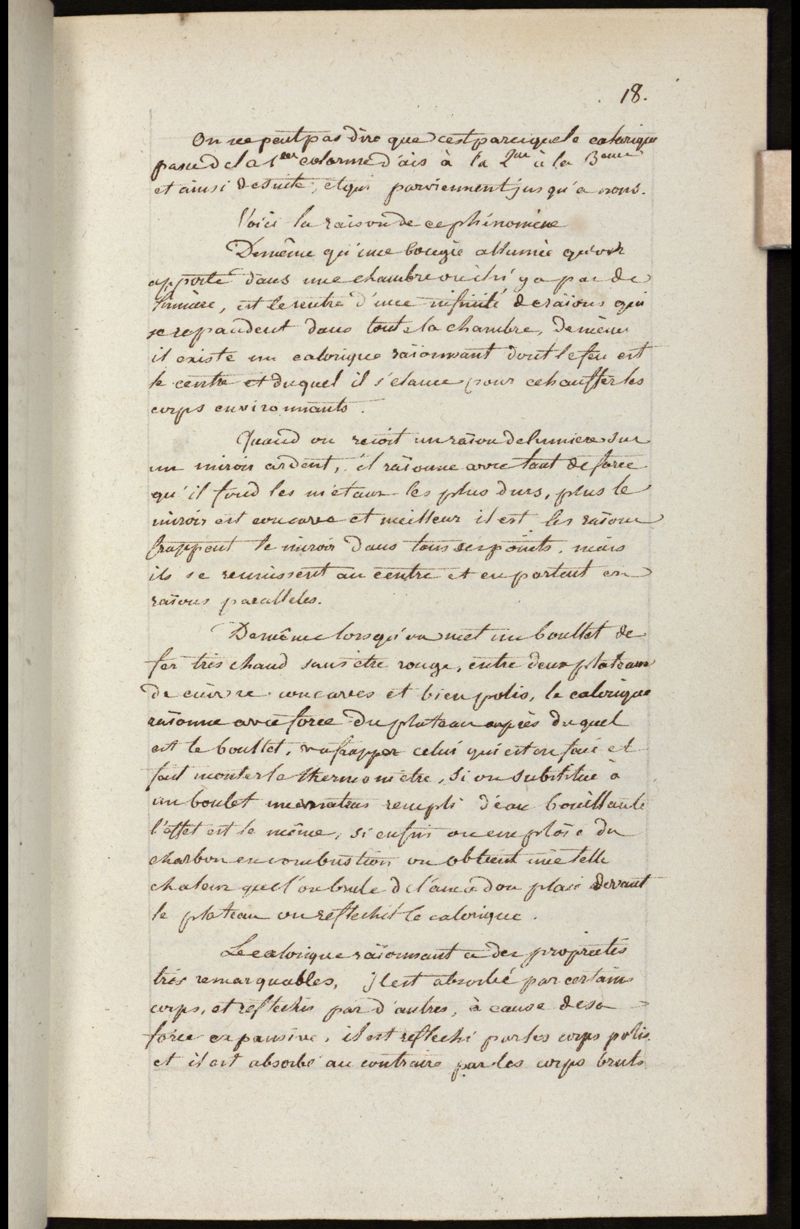 18.
On ne peut pas dire que c'est parceque le calorique
passe de la 1ere colonne d'air à la 2me à la 3eme
et ainsi de suite, et qui parviennent jusqu'a nous.
Voici la raison de ce phénomène
De même qu'une bougie allumée qu'on
apporte dans une chambre ou il n'y a pas de
lumière, est le centre d'une infinité de raïons qui
se repandent dans toute la chambre, de même
il existe un calorique raïonnant dont le feu est
le centre et duquel il s'élance pour echauffer les
corps environnants.
Quand on reçoit un raïon de lumiere sur
un miroir ardent, il raïonne avec tant de force
qu'il fond les métaux les plus durs, plus le
miroir est concave et meilleur il est les raïons
frappent le miroir dans tous ses points, mais
ils se reunissent au centre et en partent en
raïons paralleles.
De même lorsqu'on met un boullet de
fer très chaud sans etre rouge, entre deux plateaux
de cuivre concaves et bien polis, le calorique
raïonne avec force du plateau auprès duquel
est le boullet, va frapper celui qui est en face et
fait monter le thermomètre, si on substitue à
un boulet un matras rempli d'eau bouillante
l'effet est le même, si enfin on emploïe du
charbon en combustion on obtient une telle
chaleur que l'on brule de l'amadou placé devant
le plateau ou reflechit le calorique.
Le calorique raïonnant a des propriétés
très remarquables, il est absorbé par certains
corps, et reflechis par d'autres, à cause de sa
force expansive, il est reflechi par les corps polis
et il est absorbé au contraire par les corps bruts